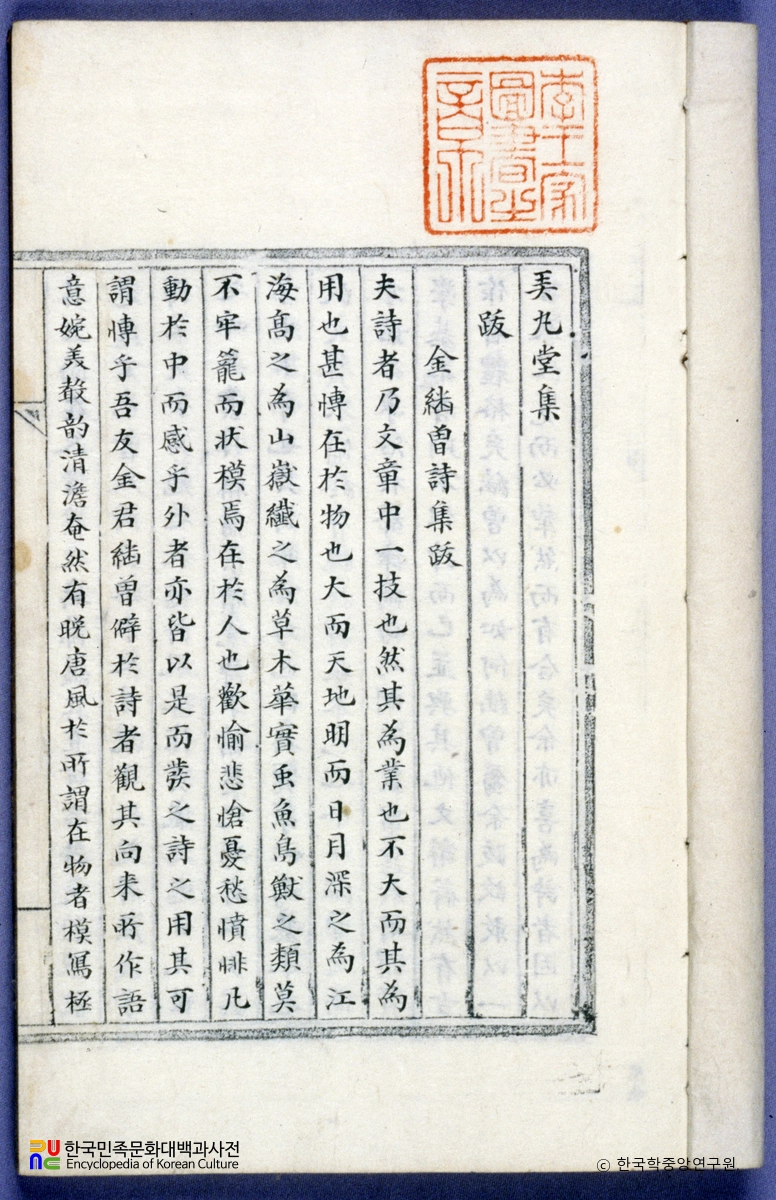 李王家
圖書之
章
弄丸堂集
跋
金緇曽詩集跋
夫詩者乃文章中一技也然其為業也不大而其為
用也甚愽在於物也大而天地明而日月深之為江
海高之為山嶽纖之為草木華實虫魚鳥獸之類莫
不牢籠而状模焉在於人也歡愉悲愴憂愁憤悱凡
動於中而感乎外者亦皆以是而發之詩之用其可
謂愽乎吾友金君緇曽僻於詩者觀其向来所作語
意婉美嚴韵清澹奄然有晚唐風於所謂在物者模寫極
한국민족문화대백과사전
Encyclopedia of Korean Culture
ⓒ 한국학중앙연구원